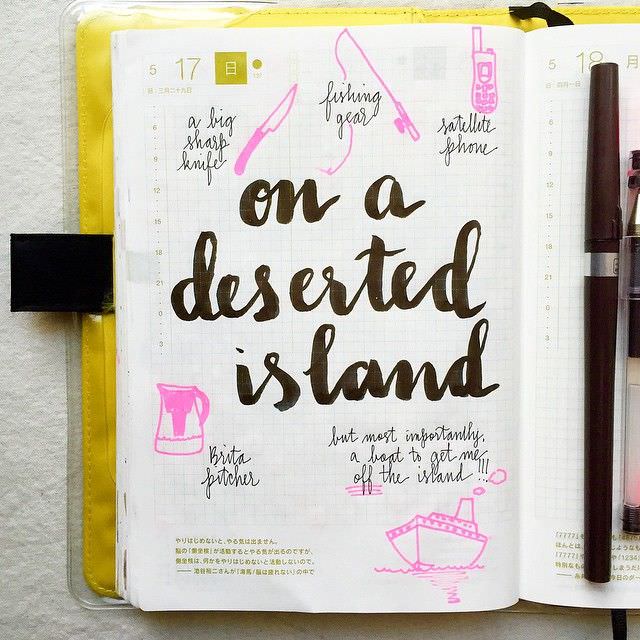 5 17 日
日: 三月二十九日
137
a big
sharp
knife
fishing
gear
satellite
phone
6
9
12
15
18
21
0
3
on a
deserted
island
Brita
pitcher
but most importantly,
a boat to get me
off the island!!!
やりはじめないと、やる気は出ません。
脳の「側坐核」が活動するとやる気が出るのですが、
側坐核は、何かをやりはじめないと活動しないので。
——池谷裕二さんが『海馬/脳は疲れない』の中で
5 18 月
日: 四月一日
6
9
12
15
18
21
0
3